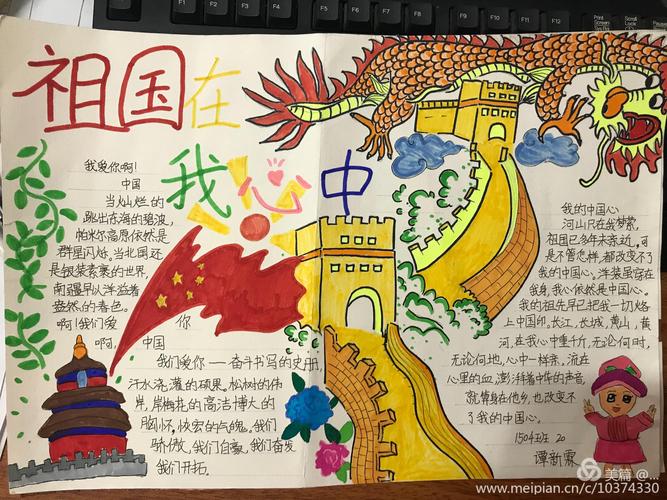 祖国在
我心中
我爱你啊!
中国
当灿烂的
跳出东海的碧波,
帕米尔高原依然是
群星闪烁,当北国还
是银装素裹的世界,
南疆早以洋溢着
盎然的春色。
啊!我们爱
你
啊,
中国
我们爱你——奋斗书写的史册,
汗水浇灌的硕果,松树的伟
岸,岸梅花的高洁博大的
胸怀,恢宏的气魄,我们
骄傲,我们自豪,我们奋发
我们开拓。
我的中国心
河山只在我梦萦,
祖国已多年未亲近,可
是不管怎样,都改变不了
我的中国心。洋装虽穿在
我身,我心依然是中国心。
我的祖先早已把我一切烙
上中国印,长江,长城,黄山,黄
河,在我心中重千斤,无论何时,
无论何地,心中一样亲,流在
心里的血,澎湃着中华的声音,
就算身在他乡,也改变不
了我的中国心。
1504班 20
谭新霖
Print
Screen
Scroll
Lock
Pause
美篇 @...
www.meipian.cn/c/10374330